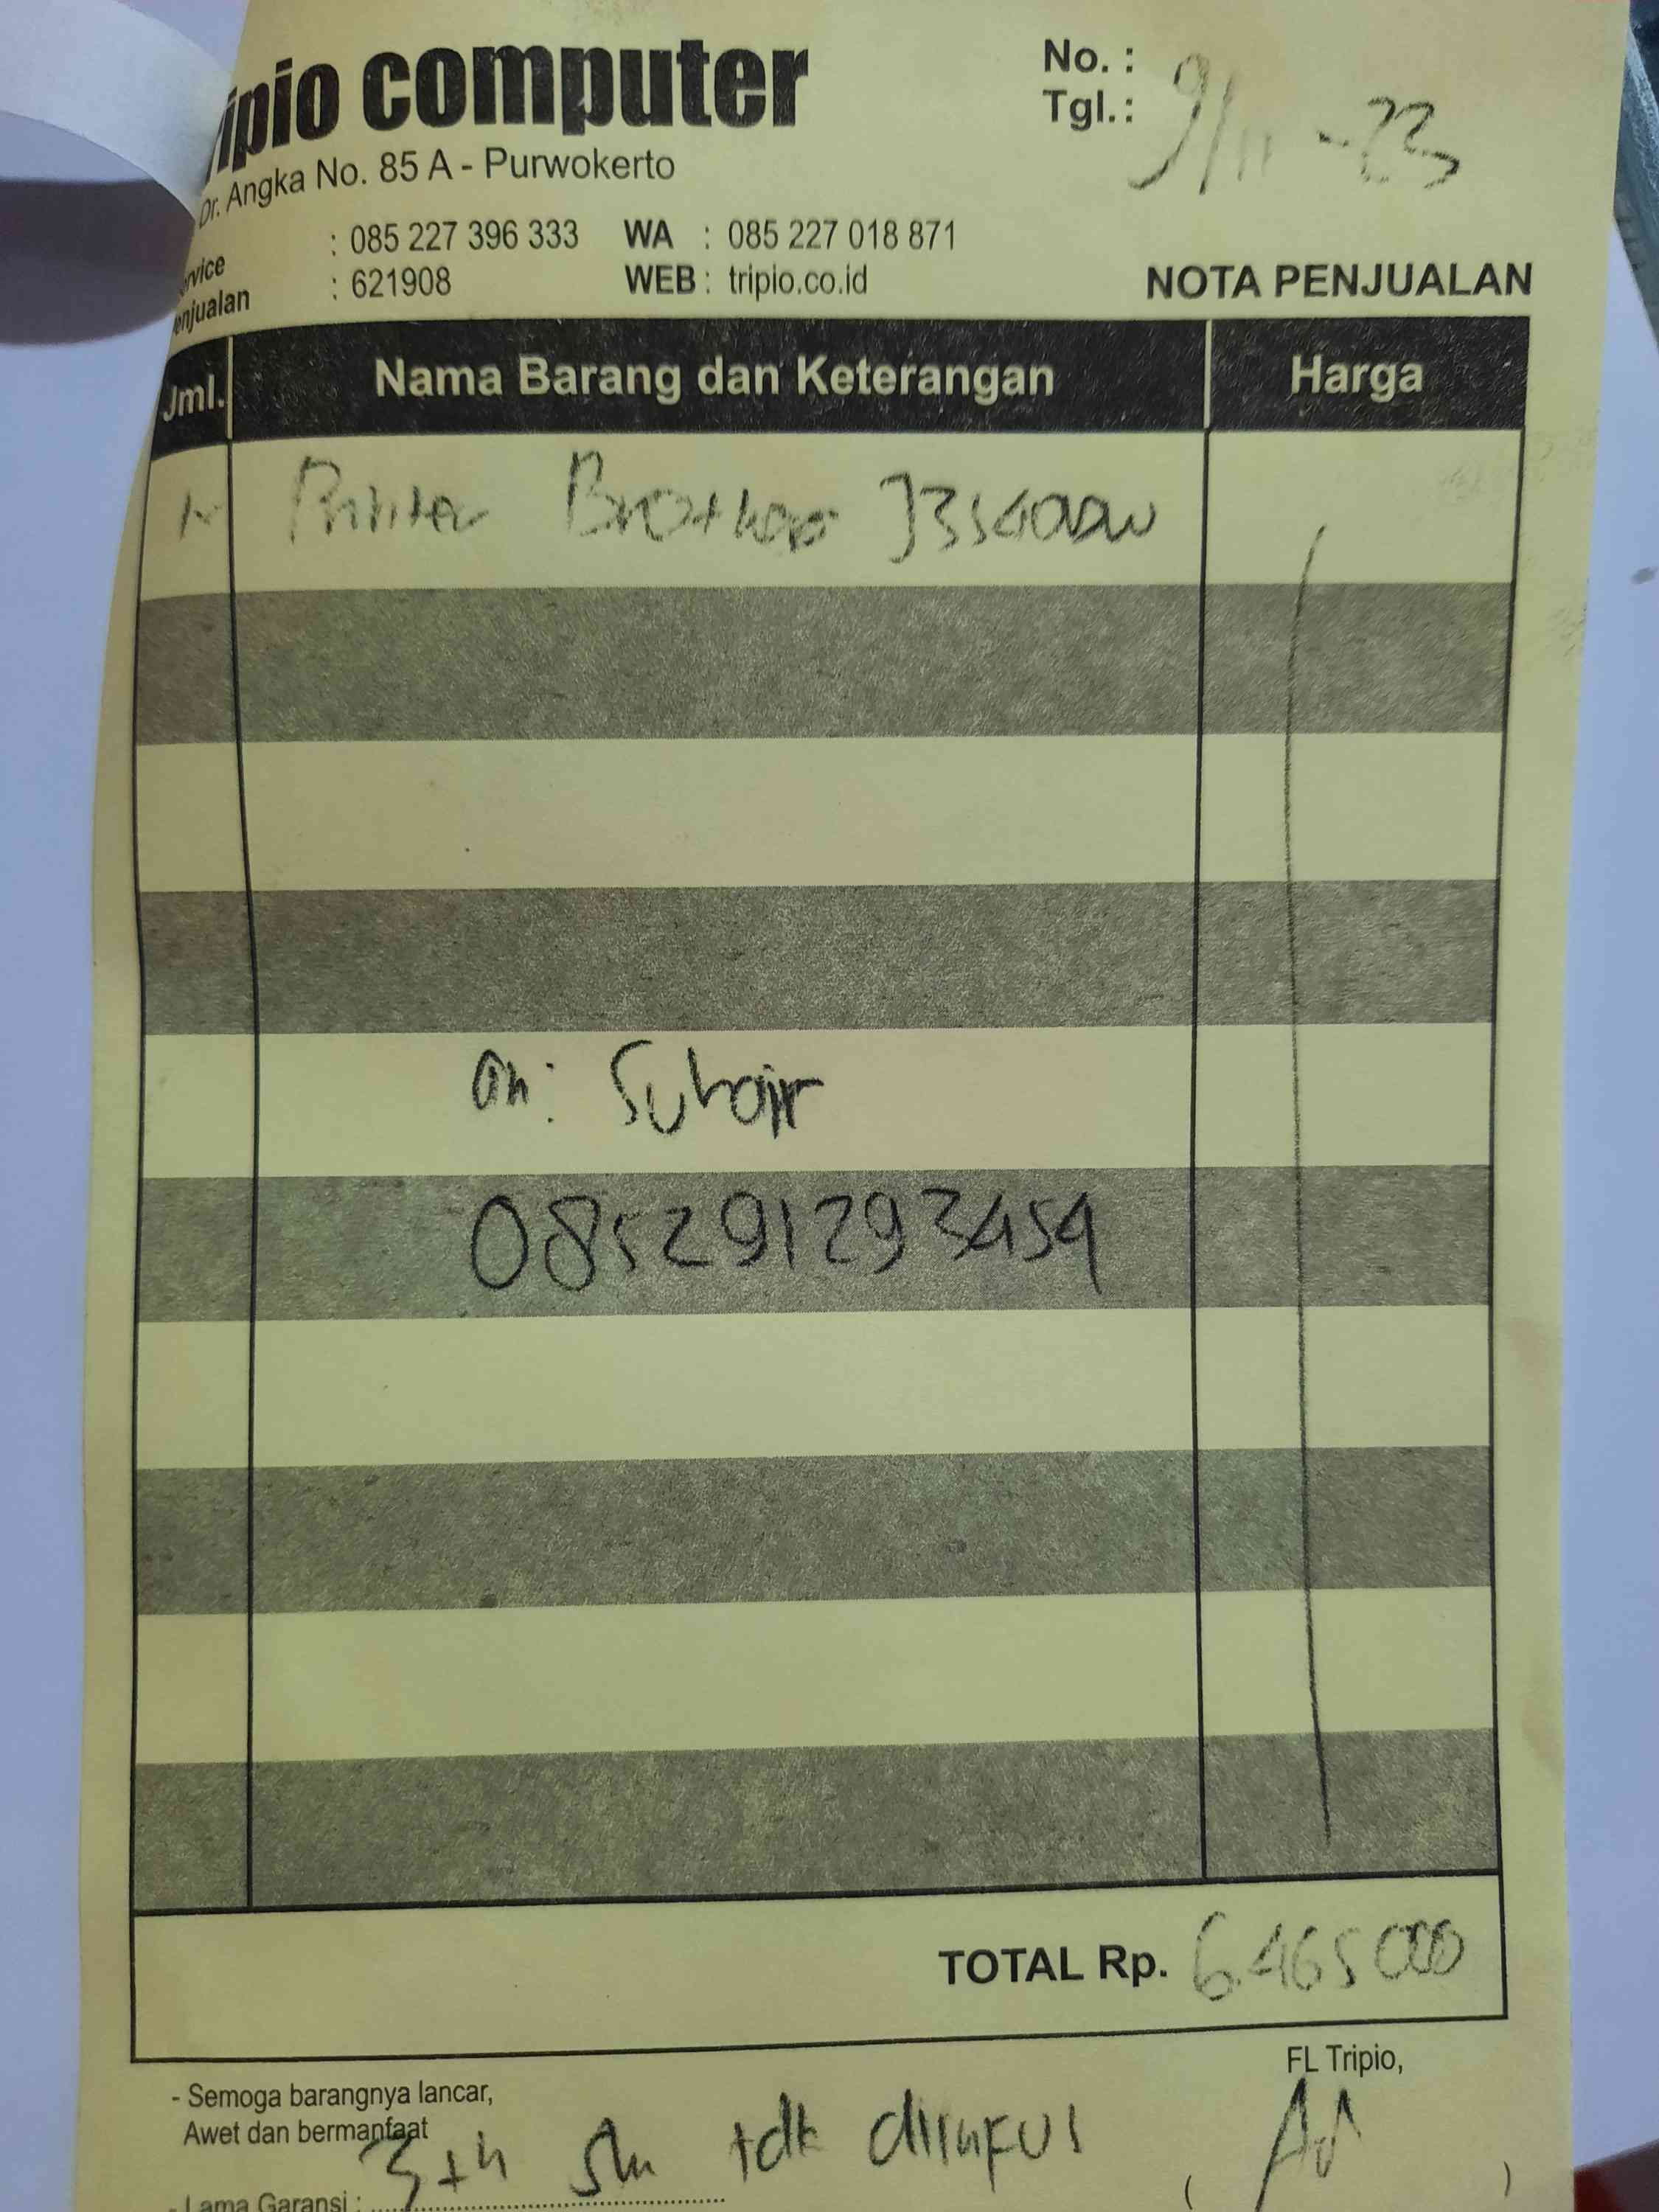 ripio computer
Dr. Angka No. 85 A - Purwokerto
No. :
Tgl. : 9/11 - 23
ervice : 085 227 396 333 WA : 085 227 018 871
enjualan : 621908 WEB : tripio.co.id
NOTA PENJUALAN
Jml. Nama Barang dan Keterangan Harga
1 Printer Brother J3540DW
an: Suhair
085291293454
TOTAL Rp. 6.465000
FL Tripio,
- Semoga barangnya lancar,
Awet dan bermanfaat
- Lama Garansi : 3 th tdk diinfus
( )